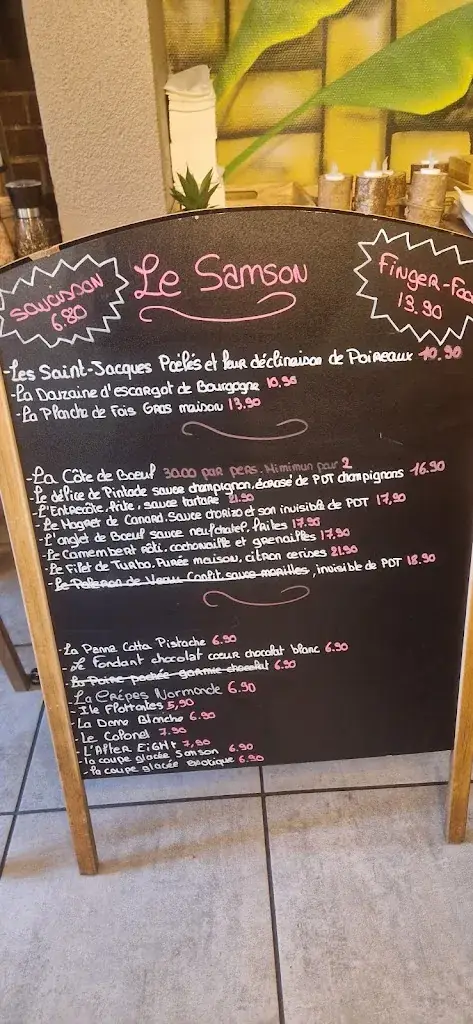 Le Samson
saucisson
6.80
Finger-Foo
13.90
-Les Saint-Jacques Poêlés et leur déclinaison de Poireaux 10.90
-La Douzaine d'escargot de Bourgogne 10,90
-La Planche de Fois Gras maison 13.90
-La Côte de Boeuf 30.00 par pers. Mimimun pour 2
-Le délice de Pintade sauce champignon, écrasé de PDT champignons 16.90
-L'Entrecôte, frite, sauce tartare 21.90
-Le Magret de Canard. Sauce chorizo et son invisible de PDT 17,90
-L'onglet de Boeuf sauce neufchatel, frites 17.90
-Le Camembert rôti, cochonaille et grenailles 17,90
-Le Filet de Turbo. Purée maison, citron cerises 21.90
-Le Paleron de Veau Confit sauce morilles, invisible de PDT 18.90
-La Panna Cotta Pistache 6.90
-Le Fondant chocolat coeur chocolat blanc 6.90
-La Poire pochée garnie chocolat 6.90
-La Crêpes Normande 6.90
-Ile Flottantes 5,90
-La Dame Blanche 6.90
-Le Colonel 7.90
-L'After Eight 7,90
-la coupe glacée Samson 6.90
-la coupe glacée exotique 6.90